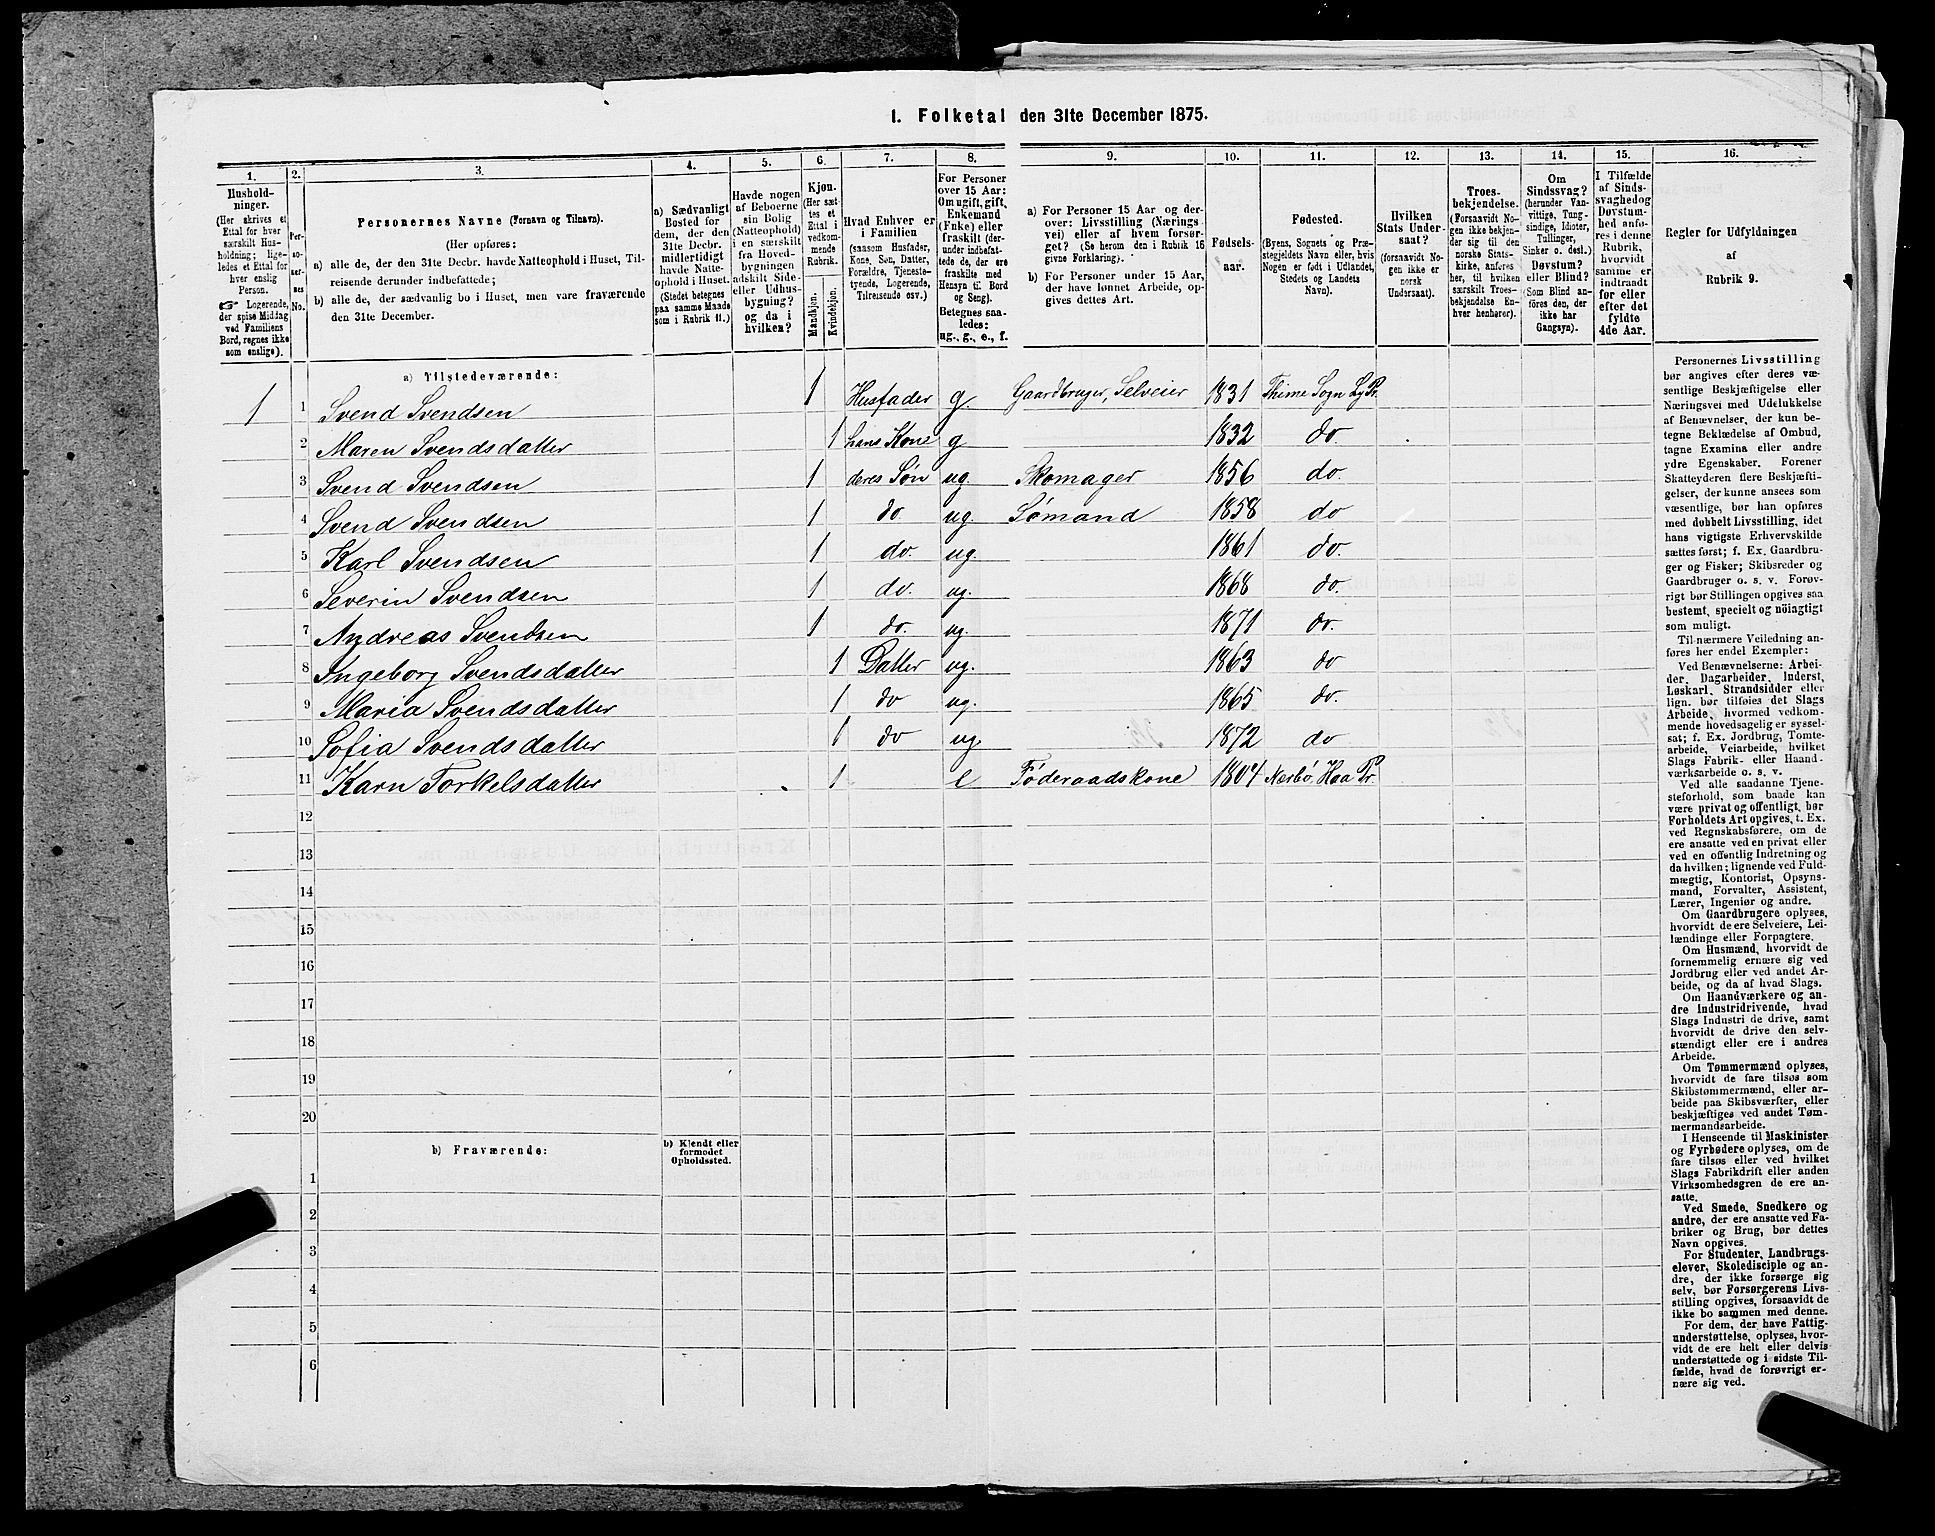 1. Folketal den 31te December 1875.
1. 2. 3. 4. 5. 6. 7. 8. 9. 10. 11. 12. 13. 14. 15. 16.
Hushold-
ninger.
(Her skrives et
Ettal for hver
særskilt Hus-
holdning; lige-
ledes et Ettal for
hver enslig
Person.
☞ Logerende,
der spise Middag
ved Familiens
Bord, regnes ikke
som enslige).
Per-
so-
ner-
nes
No.
Personernes Navne (Fornavn og Tilnavn).
(Her opføres:
a) alle de, der den 31te Decbr. havde Natteophold i Huset, Til-
reisende derunder indbefattede;
b) alle de, der sædvanlig bo i Huset, men vare fraværende
den 31te December.
a) Sædvanligt
Bosted for
dem, der den
31te Decbr.
midlertidigt
havde Natte-
ophold i Huset.
(Stedet betegnes
paa samme Maade
som i Rubrik 11.)
Havde nogen
af Beboerne
sin Bolig
(Natteophold)
i en særskilt
fra Hoved-
bygningen
adskilt Side-
eller Udhus-
bygning?
og da i
hvilken?
Kjøn.
(Her sæt-
tes et
Ettal i
vedkom-
mende
Rubrik.
Mandkjøn.
Kvindekjøn.
Hvad Enhver er
i Familien
(saasom Husfader,
Kone, Søn, Datter,
Forældre, Tjeneste-
tyende, Logerende,
Tilreisende osv.)
For Personer
over 15 Aar:
Om ugift, gift,
Enkemand
(Enke) eller
fraskilt (der-
under indbefat-
tede de, der ere
fraskilte med
Hensyn til Bord
og Seng).
Betegnes saa-
ledes:
ug., g., e., f.
a) For Personer 15 Aar og der-
over: Livsstilling (Nærings-
vei) eller af hvem forsør-
get? (Se herom den i Rubrik 16
givne Forklaring).
b) For Personer under 15 Aar,
der have lønnet Arbeide, op-
gives dettes Art.
Fødsels-
aar.
Fødested.
(Byens, Sognets og Præ-
stegjeldets Navn eller, hvis
Nogen er født i Udlandet,
Stedets og Landets
Navn).
Hvilken
Stats Under-
saat?
(forsaavidt No-
gen ikke er
norsk
Undersaat).
Troes-
bekjendelse.
(Forsaavidt No-
gen ikke bekjen-
der sig til den
norske Stats-
kirke, anføres
her, til hvilken
særskilt Troes-
bekjendelse En-
hver henhører).
Om
Sindssvag?
(herunder Van-
vittige, Tung-
sindige, Idioter,
Tullinger,
Sinker o. desl.).
Døvstum?
eller Blind?
(Som Blind an-
føres den, der
ikke har
Gangsyn).
I Tilfælde
af Sinds-
svaghed og
Døvstum-
hed anfø-
res i denne
Rubrik,
hvorvidt
samme er
indtraadt
før eller
efter det
fyldte
4de Aar.
Regler for Udfyldningen
af
Rubrik 9.
a) Tilstedeværende:
1 1 Svend Svendsen 1 Husfader g. Gaardbruger, Selveier 1831 Thime Sogn Ly Pr.
2 Maren Svendsdatter 1 hans Kone g 1832 do.
3 Svend Svendsen 1 deres Søn ug. Skomager 1856 do.
4 Svend Svendsen 1 do ug. Sømand 1858 do
5 Karl Svendsen 1 do. ug. 1861 do.
6 Severin Svendsen 1 do. ug. 1868 do.
7 Andreas Svendsen 1 do. ug. 1871 do.
8 Ingeborg Svendsdatter 1 Datter ug. 1863 do
9 Maria Svendsdatter 1 do ug. 1865 do.
10 Sofia Svendsdatter 1 do ug. 1872 do
11 Karn Torkelsdatter 1 e Føderaadskone 1804 Nærbø, Haa Pr.
12
13
14
15
16
17
18
19
20
b) Fraværende:
b) Kjendt eller
formodet
Opholdssted.
1
2
3
4
5
6
Personernes Livsstilling
bør angives efter deres væ-
sentlige Beskjæftigelse eller
Næringsvei med Udelukkelse
af Benævnelser, der kun be-
tegne Beklædelse af Ombud,
tagne Examina eller andre
ydre Egenskaber. Forener
Skatteyderen flere Beskjæfti-
gelser, der kunne ansees som
væsentlige, bør han opføres
med dobbelt Livsstilling, idet
hans vigtigste Erhvervskilde
sættes først; f. Ex. Gaardbru-
ger og Fisker; Skibsreder og
Gaardbruger o. s. v. Forøv-
rigt bør Stillingen opgives saa
bestemt, specielt og nöiagtigt
som muligt.
Til nærmere Veiledning an-
føres her endel Exempler:
Ved Benævnelserne: Arbei-
der, Dagarbeider, Inderst,
Løskarl, Strandsidder eller
lign. bør tilføies det Slags
Arbeide, hvormed vedkom-
mende hovedsagelig er syssel-
sat; f. Ex. Jordbrug, Tomte-
arbeide, Veiarbeide, hvilket
Slags Fabrik- eller Haand-
værksarbeide o. s. v.
Ved alle saadanne Tjene-
steforhold, som baade kan
være privat og offentligt, bør
Forholdets Art opgives, t. Ex.
ved Regnskabsførere, om de
ere ansatte ved en privat eller
ved en offentlig Indretning og
da hvilken; lignende ved Fuld-
mægtig, Kontorist, Opsyns-
mand, Forvalter, Assistent,
Lærer, Ingeniør og andre.
Om Gaardbrugere oplyses,
hvorvidt de ere Selveiere, Lei-
lændinge eller Forpagtere.
Om Husmænd, hvorvidt de
fornemmelig ernære sig ved
Jordbrug eller ved andet Ar-
beide, og da af hvad Slags.
Om Haandværkere og an-
dre Industridrivende, hvad
Slags Industri de drive, samt
hvorvidt de drive den selv-
stændigt eller ere i andres
Arbeide.
Om Tømmermænd oplyses,
hvorvidt de fare tilsøs som
Skibstømmermænd, eller ar-
beide paa Skibsværfter, eller
beskjæftiges ved andet Tøm-
mermandsarbeide.
I Henseende til Maskinister
og Fyrbødere oplyses, om de
fare tilsøs eller ved hvilket
Slags Fabrikdrift eller anden
Virksomhedsgren de ere an-
satte.
Ved Smede, Snedkere og
andre, der ere ansatte ved Fa-
briker og Brug, bør dettes
Navn opgives.
For Studenter, Landbrugs-
elever, Skoledisciple og an-
dre, der ikke forsørge sig
selv, bør Forsørgerens Livs-
stilling opgives, forsaavidt de
ikke bo sammen med denne.
For dem, der have Fattig-
understøttelse, oplyses, hvor-
vidt de ere helt eller delvis
understøttede og i sidste Til-
fælde, hvad de forøvrigt er-
nære sig ved.